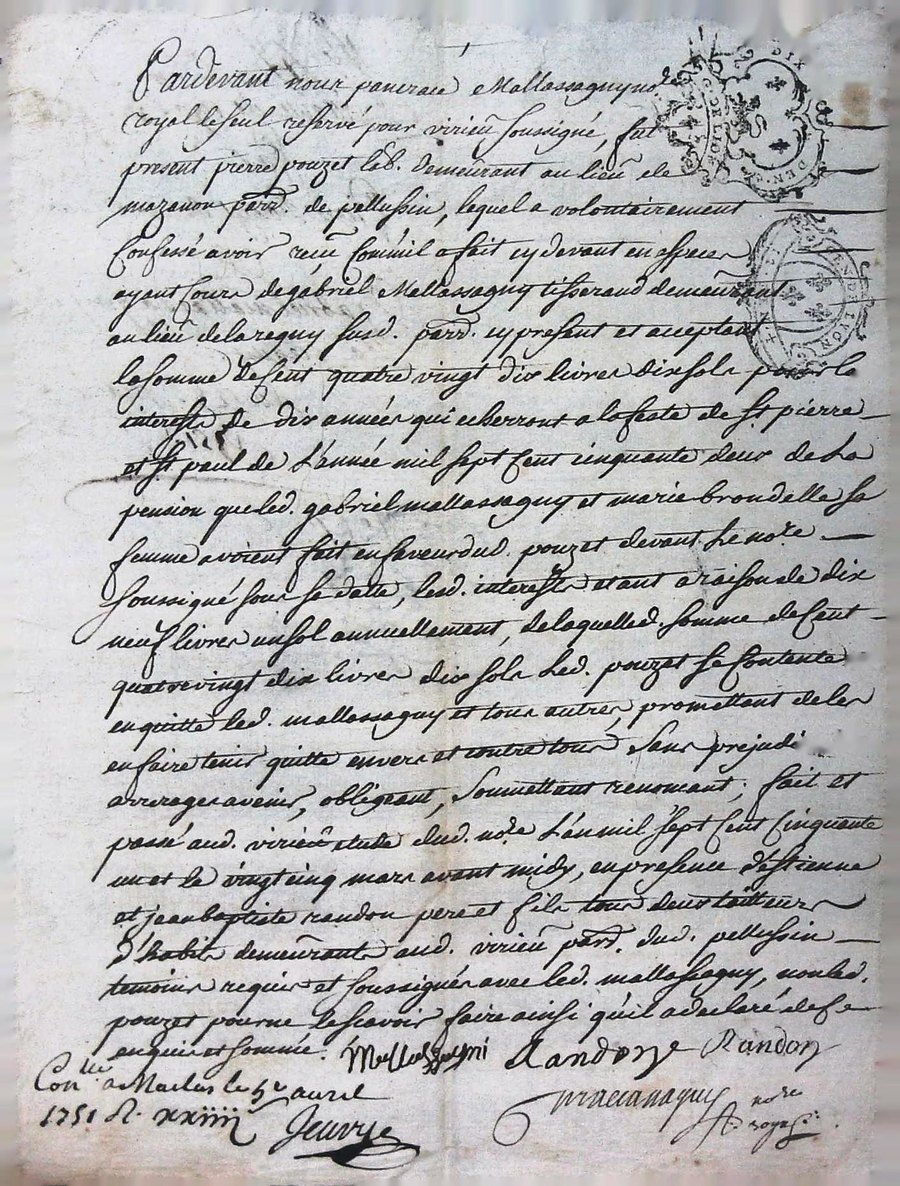 Pardevant nous pancrace Mallassagny no.re
royal le seul reservé pour virieu soussigné, fut
present pierre pouzet lab. demeurant au lieu de
mazanon parr. de pellussin, lequel a volontairement
Confessé avoir reçu Comme il a fait cy devant en especes
ayant Cours de gabriel Mallassagny tisserand demeurant
au lieu de laregny susd. parr. cy present et acceptant
la somme de Cent quatre vingt dix livres dix sols pour le
interests de dix années qui echerront a la feste de St. pierre
et St. paul de L'année mil sept Cent cinquante deux de La
pension que led. gabriel mallassagny et marie brondelle sa
femme avoient fait en faveur dud. pouzet devant Le no.re
soussigné sous sa datte, lesd. interests etant a raison de dix
neuf livres un sol annuellement, de laquelle d. somme de Cent
quatre vingt dix livres dix sols Led. pouzet se Contente
en quitte led. mallassagny et tous autres, promettant de les
en faire tenir quitte envers et contre tous sans prejudi
arrerages avenir, obligeant, soumettant renonçant; fait et
passé aud. virieu etude dud. no.re L'an mil sept Cent Cinquante
un et le vingt cinq mars avant midy, en presence d'estienne
et jean baptiste randon pere et fils tous deux tailleurs
d'habits demeurants aud. virieu parr. dud. pellussin
temoins requis et soussignés avec led. mallassagny, non led.
pouzet pour ne le scavoir faire ainsi qu'il a declaré de ce
enquis et sommé. Mallassagni Randon Randon
Con.llé a Maclas le 5e avril
1751 R. xxiiii
no.re
royal